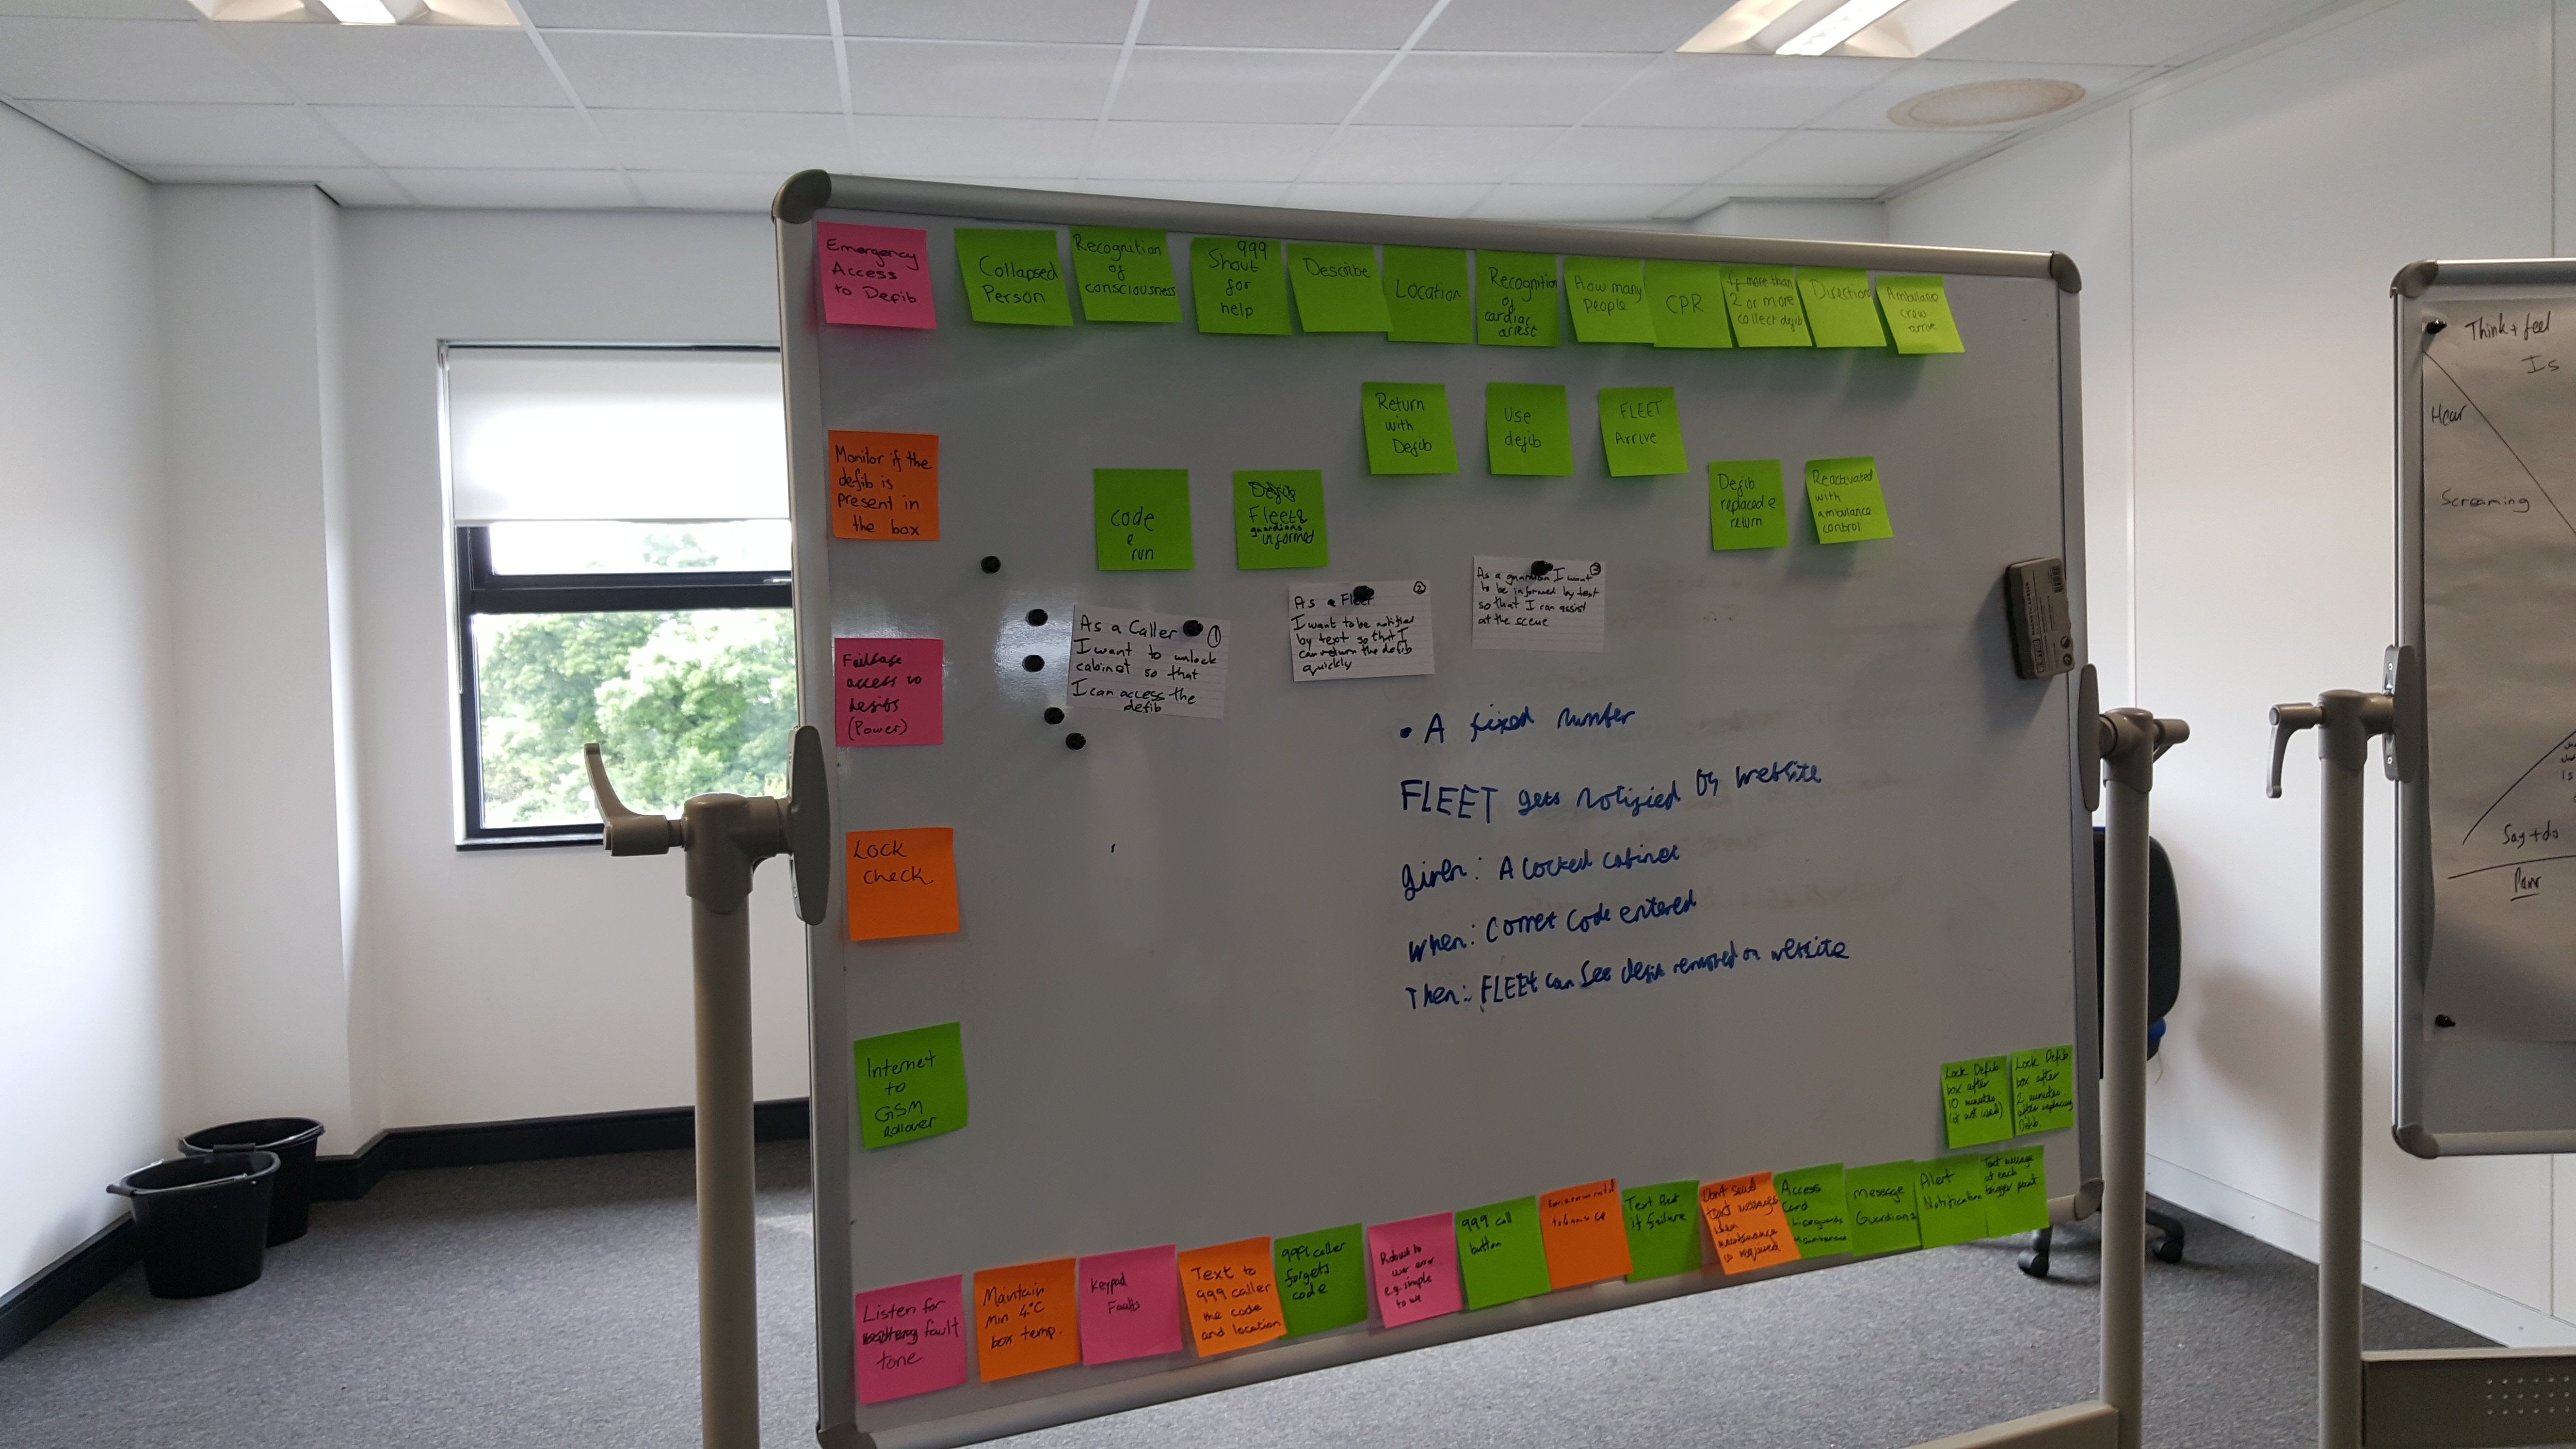 Emergency
Access
to Defib
Collapsed
Person
Recognition
of
consciousness
999
Shout
for
help
Describe
Location
Recognition
of
cardiac
arrest
How many
People
CPR
If more than
2 or more
collect defib
Direction
Ambulance
crew
arrive
Return
with
Defib
Use
defib
FLEET
Arrive
Monitor if the
defib is
present in
the box
code
&
run
Defib
Fleet &
guardians
informed
Defib
replaced &
return
Reactivated
with
ambulance
control
As a Caller
1
I want to unlock
cabinet so that
I can access the
defib
As a Fleet
2
I want to be notified
by text so that I
can return the defib
quickly
As a guardian I want
3
to be informed by text
so that I can assist
at the scene
Failsafe
access to
defibs
(Power)
• A fixed number
FLEET gets notified by website
given: A locked cabinet
when: Correct code entered
Then: FLEET can see defib removed on website
Lock
Check
Internet
to
GSM
Rollover
Lock Defib
box after
10 minutes
(if not used)
Lock Defib
box after
2 minutes
after replacing
Defib.
Listen for
fault
tone
Maintain
Min 4°C
box temp.
Keypad
Faults
Text to
999 caller
the code
and location
999 caller
forgets
code
Robust to
user error
e.g. simple
to use
999 call
button
Environmental
tolerance
Text fleet
if failure
Dont send
text messages
when
maintenance
is required
Access
Card
Maintenance
Message
Guardians
Alert
Notification
Text message
at each
trigger point
Think + feel
Is
Hear
Screaming
Say + do
Pain